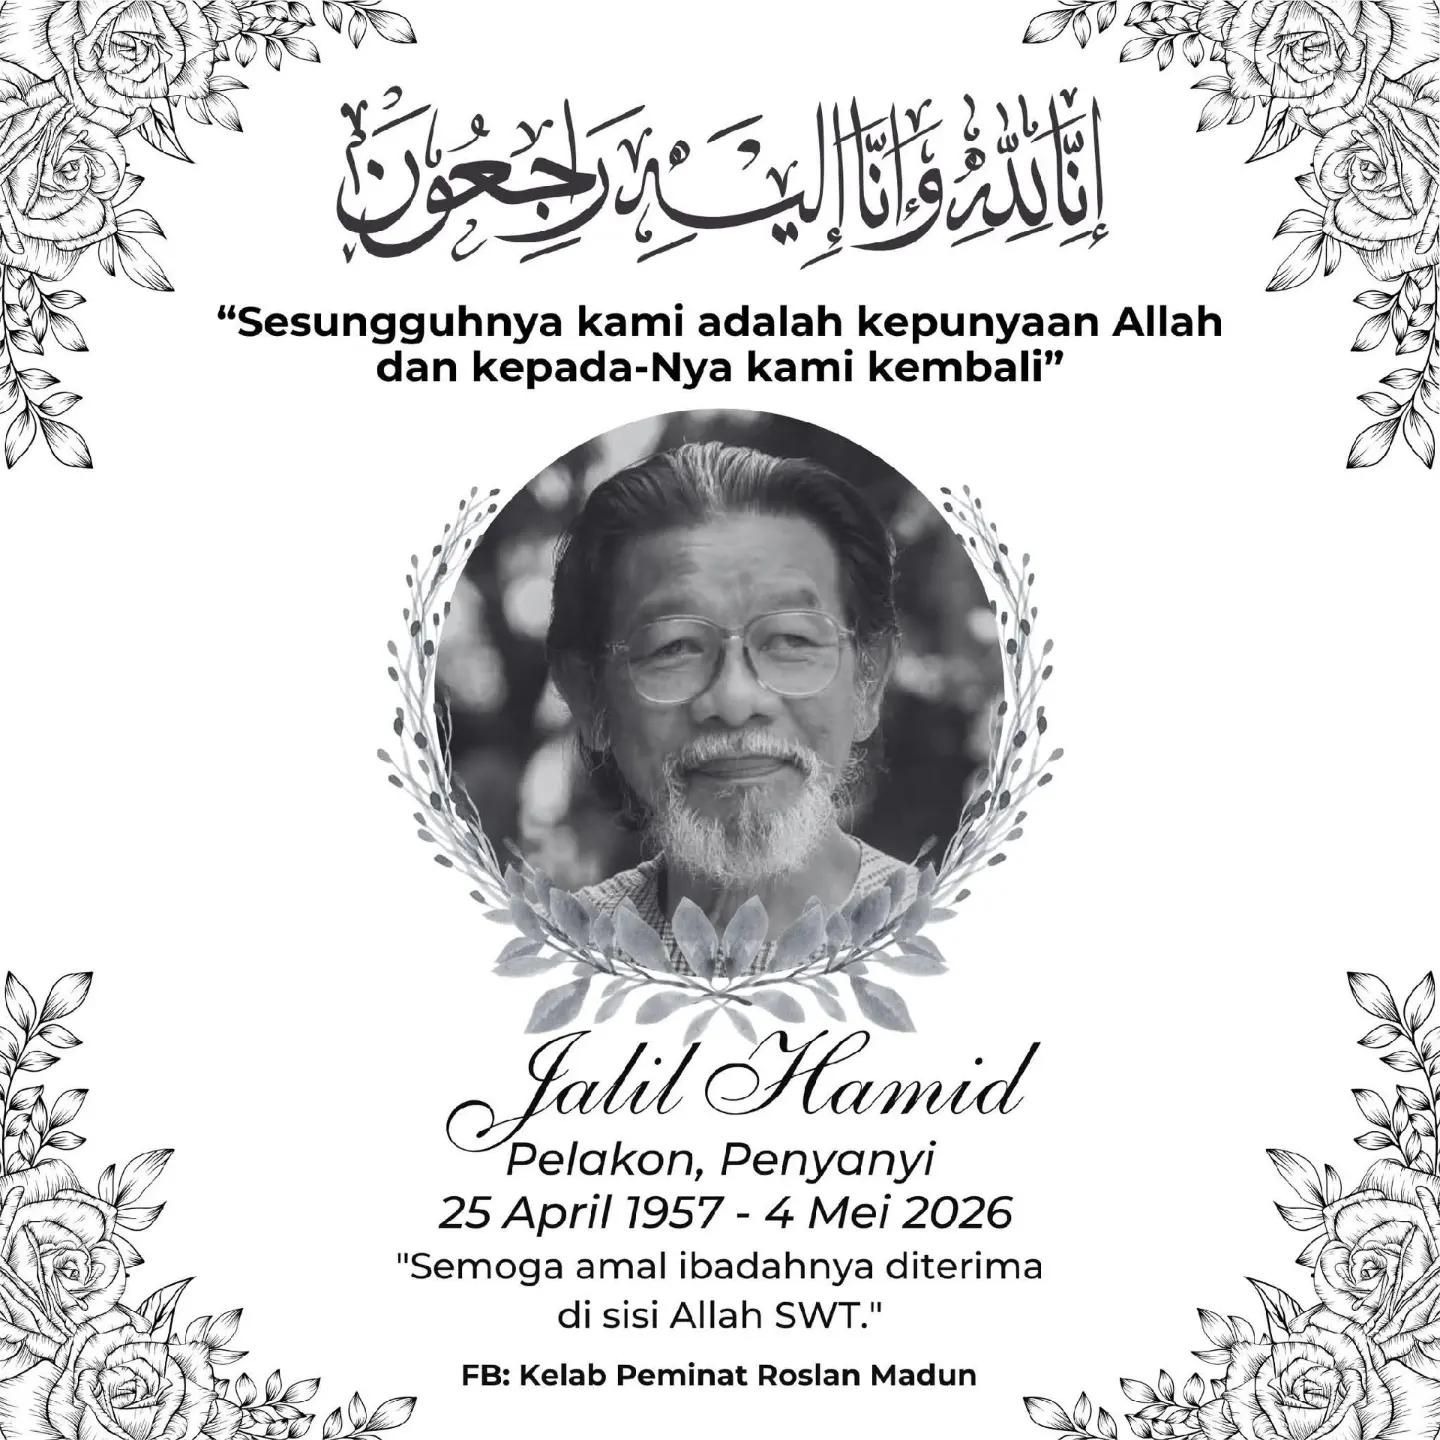 إِنَّا لِلَّهِ وَإِنَّا إِلَيْهِ رَاجِعُونَ
“Sesungguhnya kami adalah kepunyaan Allah
dan kepada-Nya kami kembali”
Jalil Hamid
Pelakon, Penyanyi
25 April 1957 - 4 Mei 2026
"Semoga amal ibadahnya diterima
di sisi Allah SWT."
FB: Kelab Peminat Roslan Madun